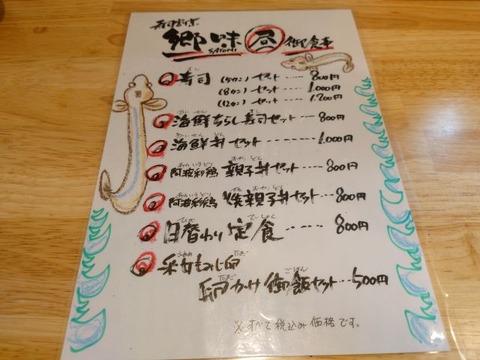 郷味 昼 御食事
SATOMI
寿司 (5カン) セット ---- 800円
(8カン) セット ---- 1,000円
(12カン) セット ---- 1,200円
海鮮ちらし寿司セット --- 800円
海鮮丼セット ------ 1,000円
阿波彩鶏 親子丼セット --- 800円
阿波彩鶏 焼親子丼セット --- 800円
日替わり定食 ----- 800円
采女もみじ卵
卵かけ御飯セット --- 500円
※すべて税込み価格です。